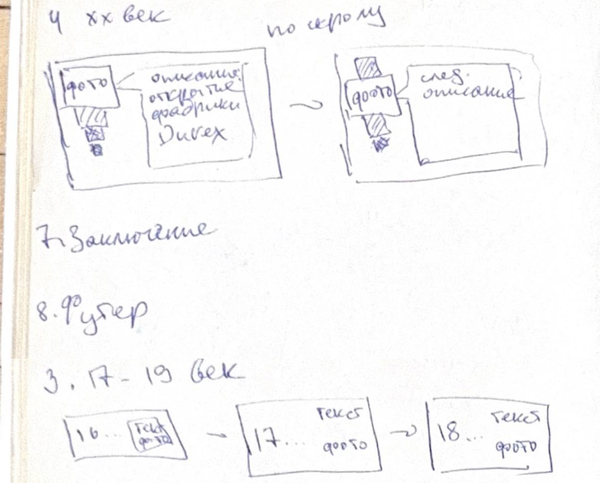 4 XX век
по скролу
фото
описание:
открытие
фабрики
Durex
фото
след.
описание
7. Заключение
8. Футер
3. 17-19 век
16...
текст
фото
17...
текст
фото
18...
текст
фото